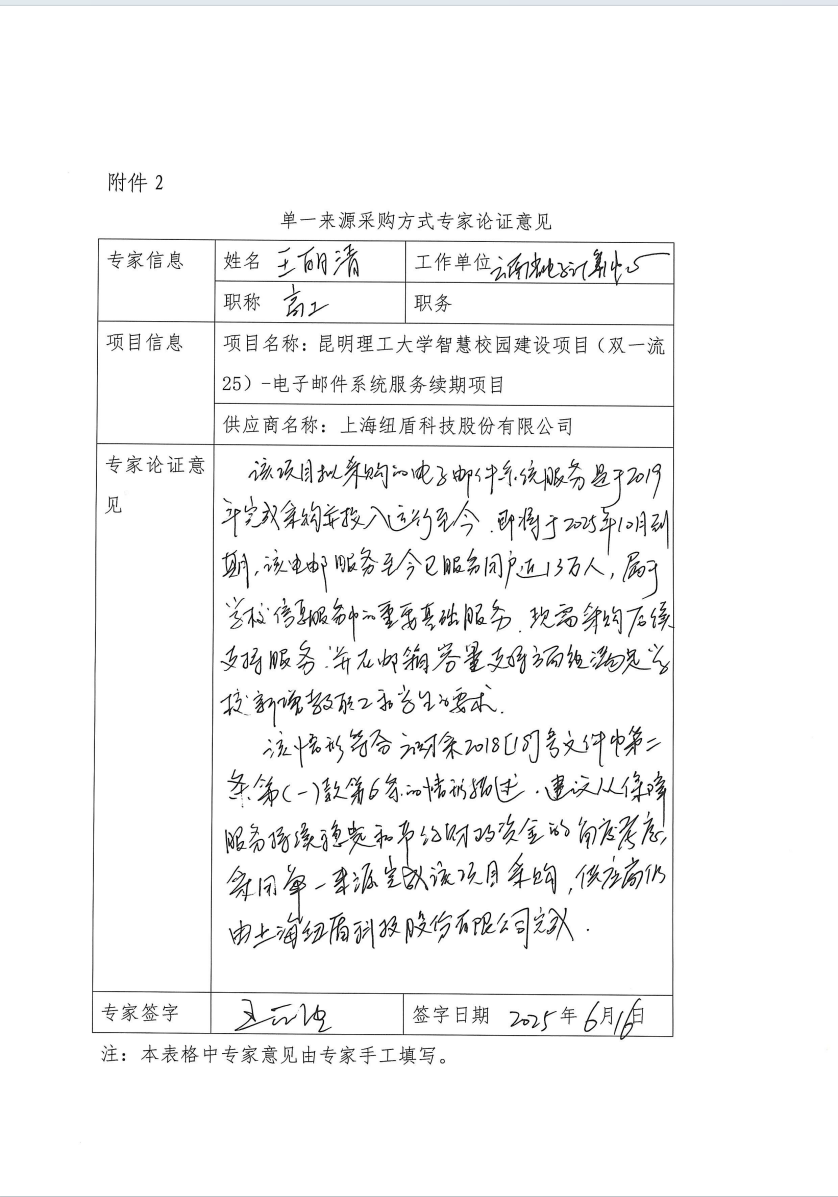 附件 2
单一来源采购方式专家论证意见
专家信息 姓名 王明清 工作单位 云南省电子计算中心
职称 高工 职务
项目信息 项目名称：昆明理工大学智慧校园建设项目（双一流
25）-电子邮件系统服务续期项目
供应商名称：上海纽盾科技股份有限公司
专家论证意
见
该项目拟采购的电子邮件系统服务是于2019
年完成采购并投入运行至今，即将于2025年10月到
期，该电邮服务至今已服务用户近13万人，属于
学校信息服务中的重要基础服务，现需采购后续
支持服务，并在邮箱容量支持方面能满足学
校新增教职工和学生的要求．
该情形符合云财采2018[18]号文件中第二
条第(一)款第6条的情形描述．建议从保障
服务持续稳定和节约财政资金的角度考虑，
采用单一来源完成该项目采购，供应商仍
由上海纽盾科技股份有限公司完成．
专家签字 签字日期 2025 年 6月16日
注：本表格中专家意见由专家手工填写。